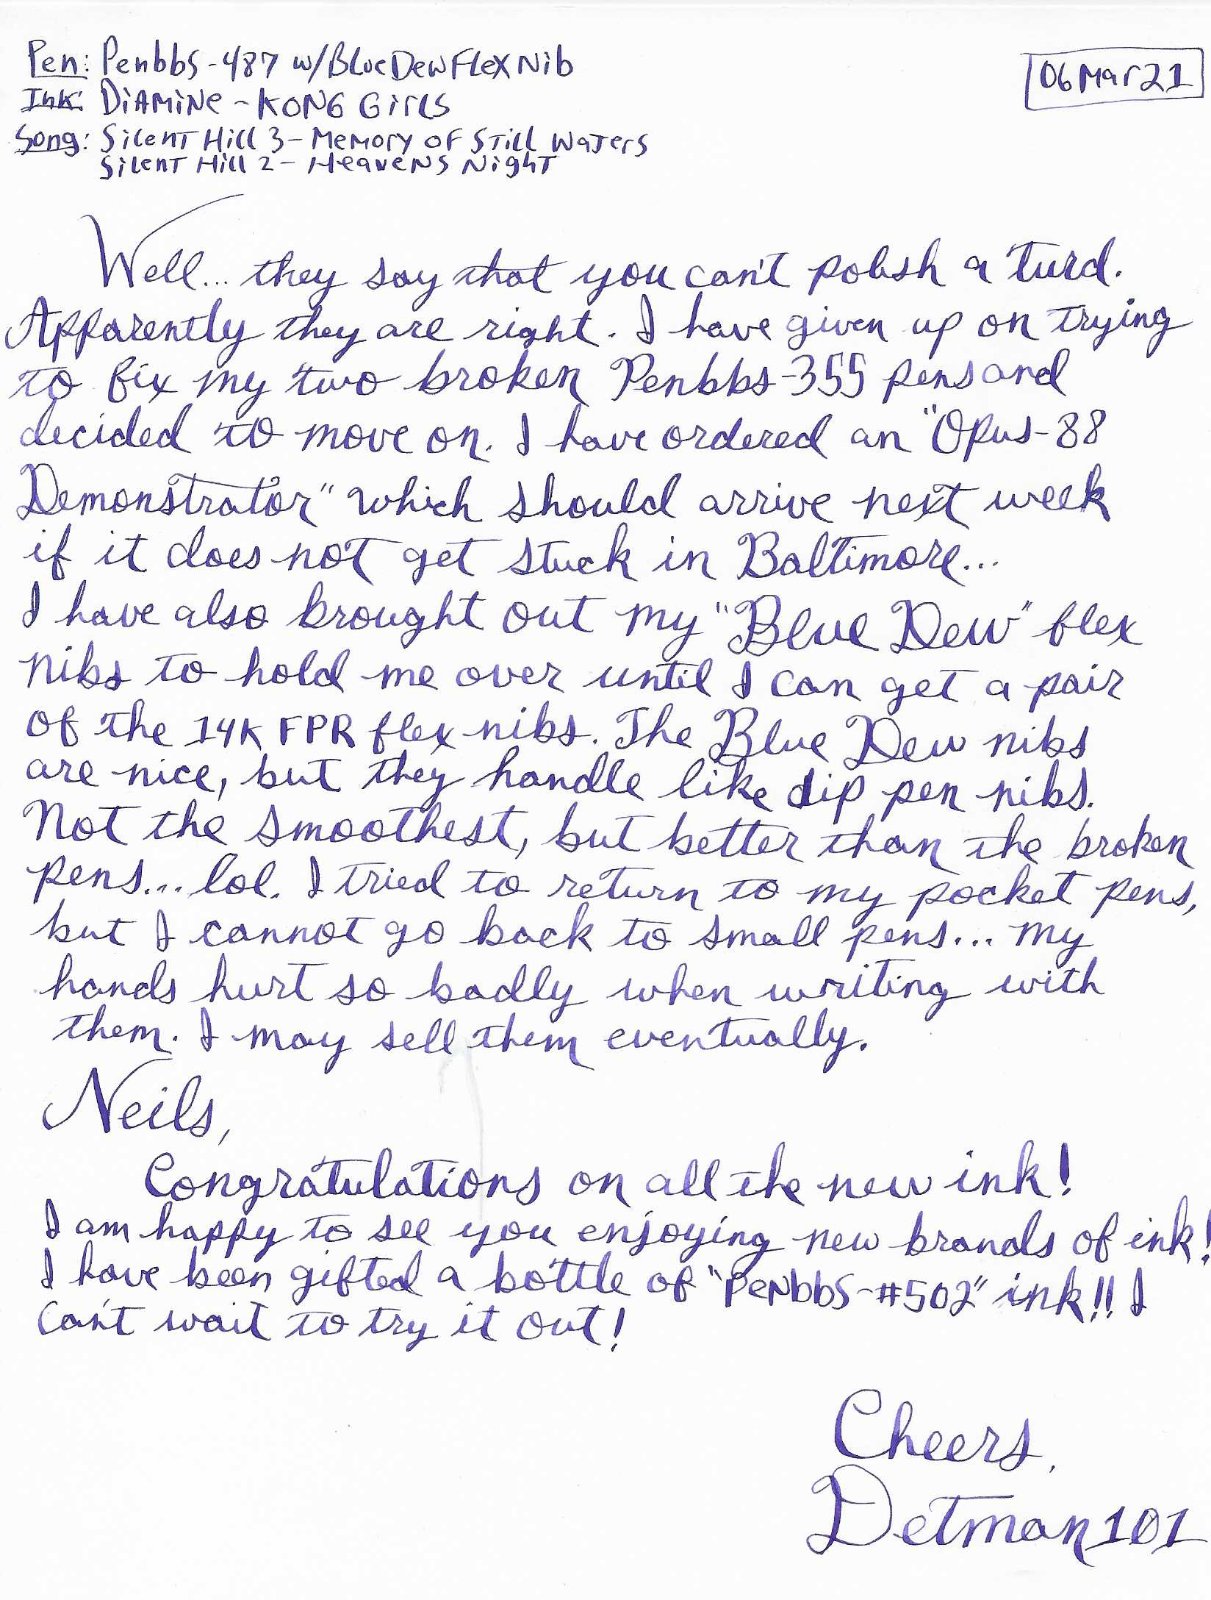 Pen: Penbbs-487 w/BlueDewFlexNib
06Mar21
Ink: DiAMiNe - KONG GirLS
Song: Silent Hill 3 - Memory of Still Waters
Silent Hill 2 - Heavens Night
Well... they say that you can't polish a turd.
Apparently they are right. I have given up on trying
to fix my two broken Penbbs-355 pens and
decided to move on. I have ordered an "Opus-88
Demonstrator" which should arrive next week
if it does not get stuck in Baltimore...
I have also brought out my "Blue Dew" flex
nibs to hold me over until I can get a pair
of the 14K FPR flex nibs. The Blue Dew nibs
are nice, but they handle like dip pen nibs.
Not the smoothest, but better than the broken
pens... lol. I tried to return to my pocket pens,
but I cannot go back to small pens... my
hands hurt so badly when writing with
them. I may sell them eventually.
Neils,
Congratulations on all the new ink!
I am happy to see you enjoying new brands of ink!
I have been gifted a bottle of "PeNbbS-#502" ink!! I
can't wait to try it out!
Cheers,
Detman101